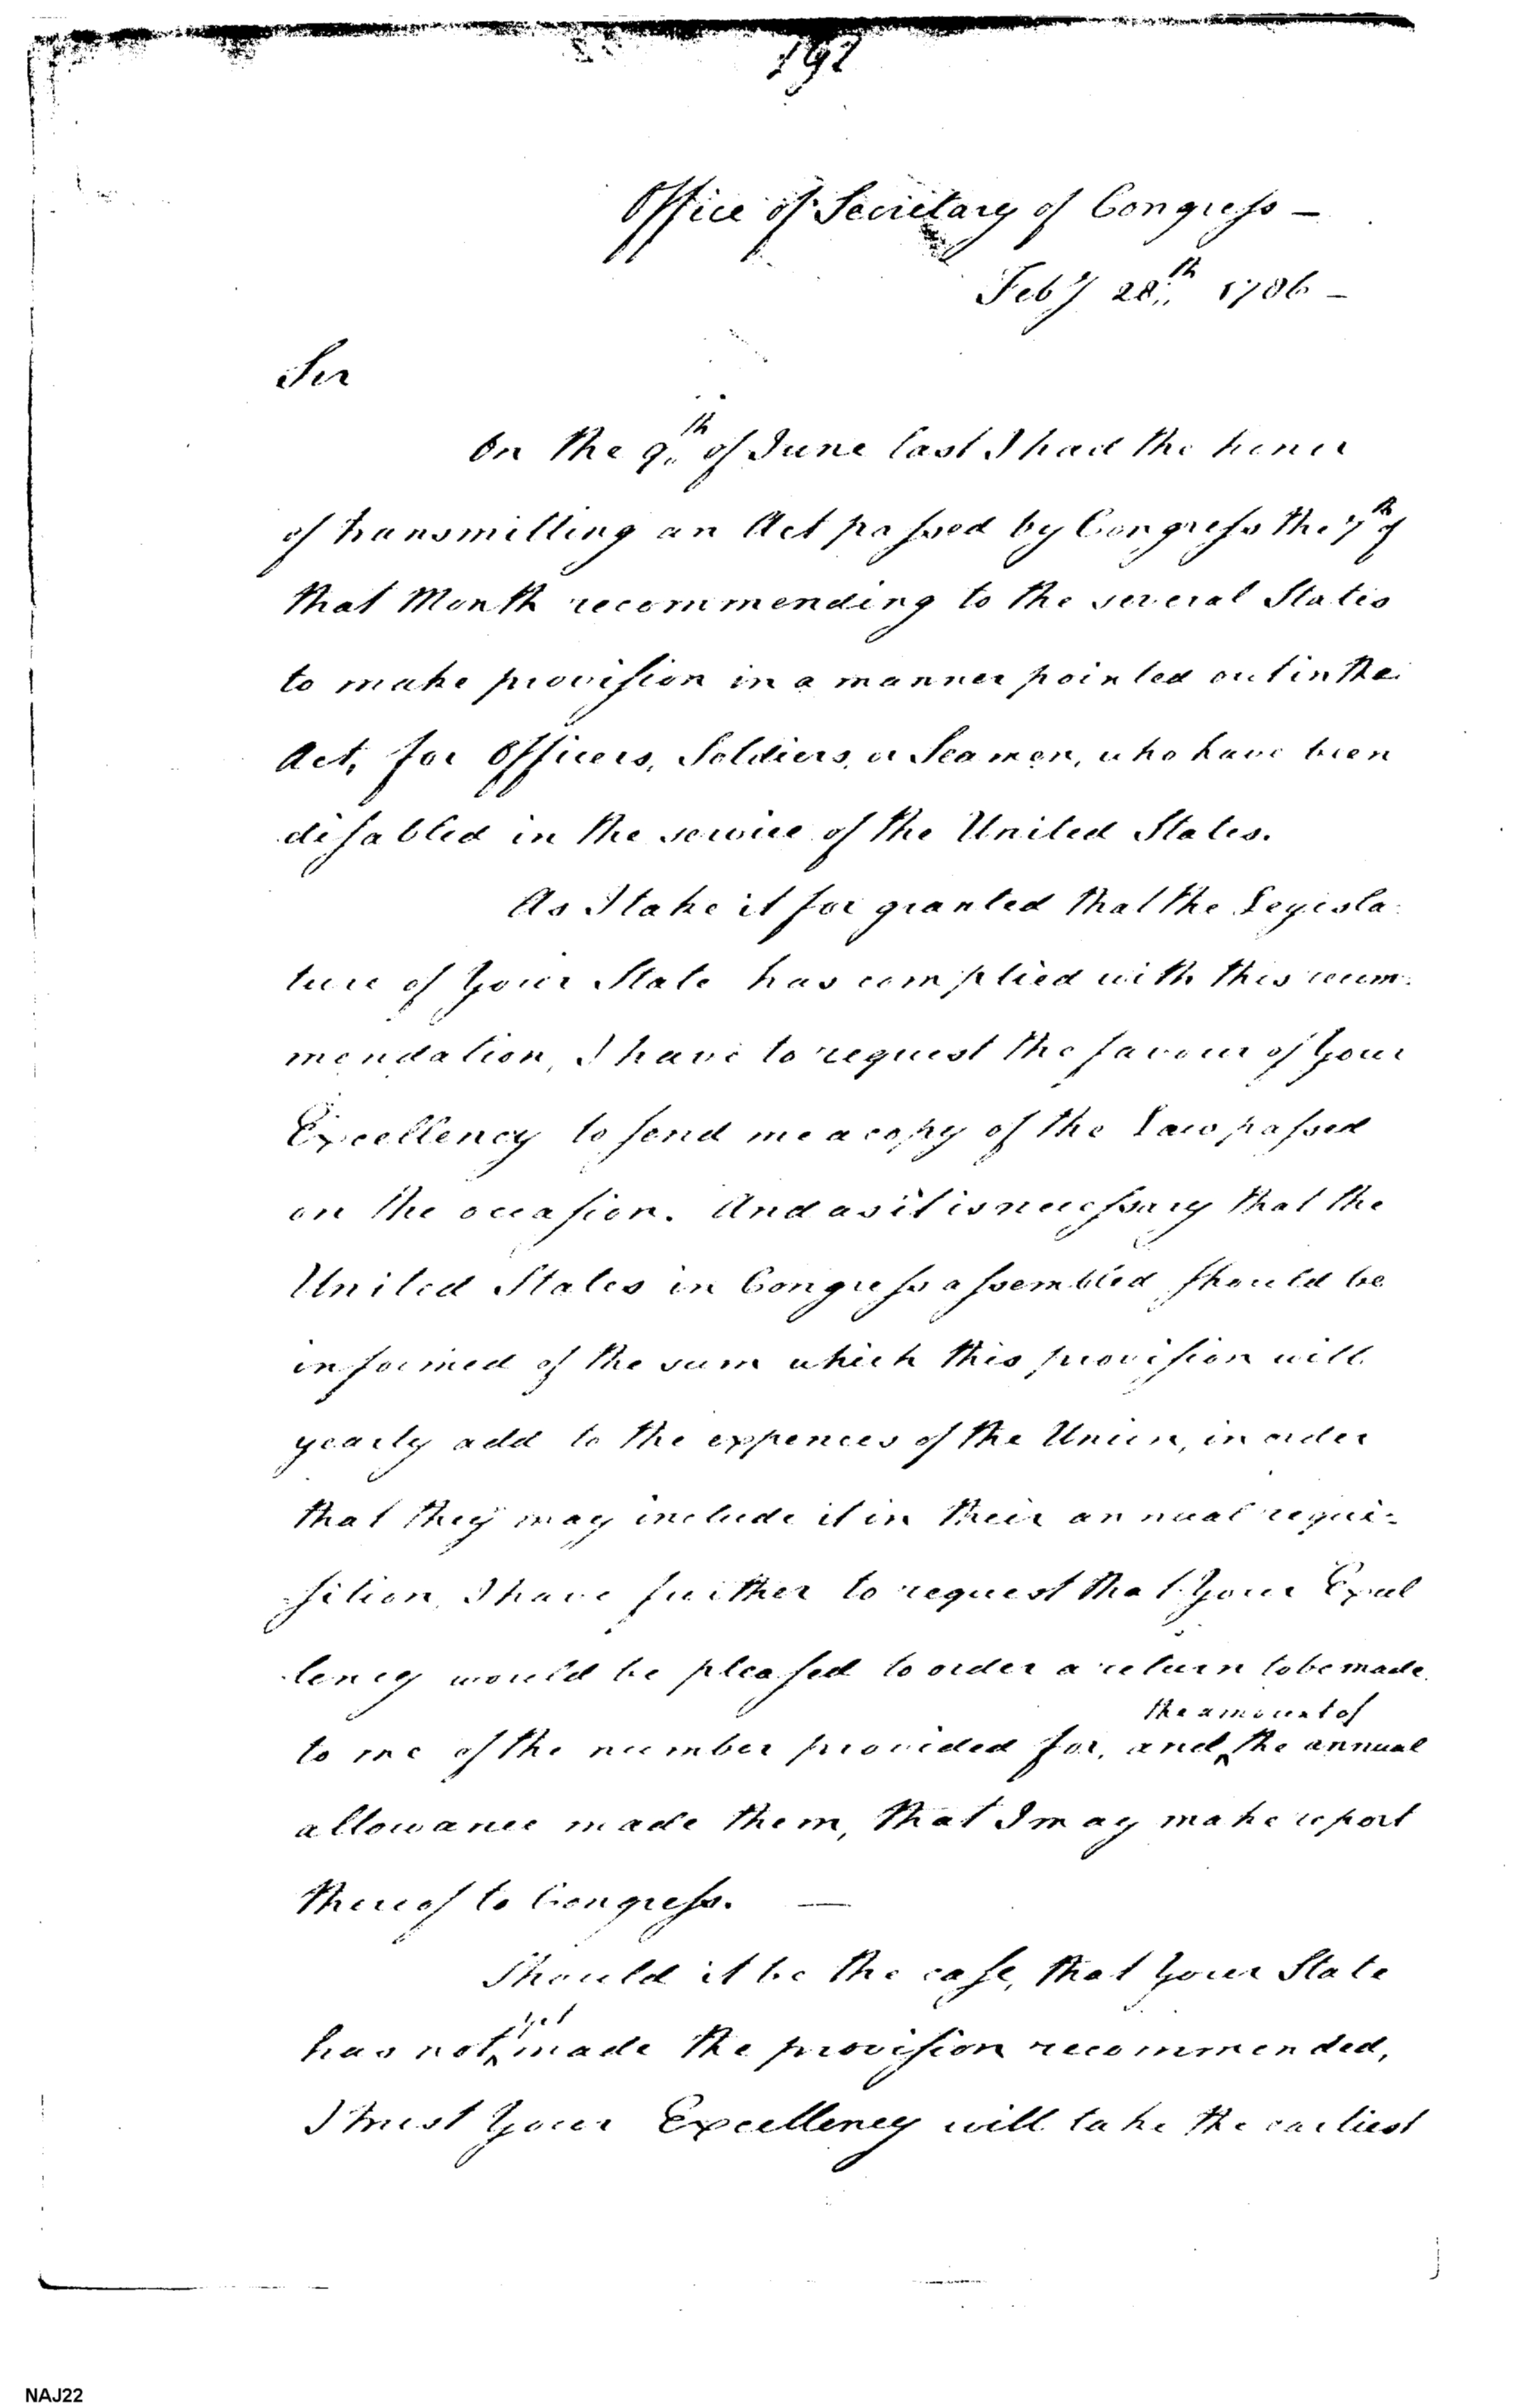 192
Office of Secretary of Congress —
Feby 28th 1786 —
Sir
On the 9th of June last I had the honor
of transmitting an Act passed by Congress the 7th of
that Month recommending to the several States
to make provision in a manner pointed out in the
Act, for Officers, Soldiers, or Seamen, who have been
disabled in the service of the United States.
As I take it for granted that the Legisla:
ture of Your State has complied with this recom:
mendation, I have to request the favour of Your
Excellency to send me a copy of the Law passed
on the occasion. And as it is necessary that the
United States in Congress assembled should be
informed of the sum which this provision will
yearly add to the expences of the Union, in order
that they may include it in their annual requi=
sition, I have further to request that Your Excel
lency would be pleased to order a return to be made
the amount of
to me of the number provided for, and ^ the annual
allowance made them, that I may make report
thereof to Congress. —
Should it be the case, that Your State
yet
has not ^ made the provision recommended,
I trust Your Excellency will take the earliest
NAJ22